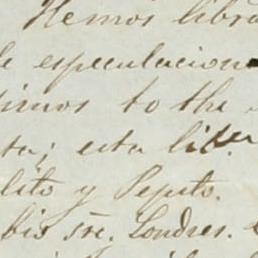 Hemos libra
e especulacion
timos to the
ta; esta lib
lito y Pepito.
bio sre. Londres.